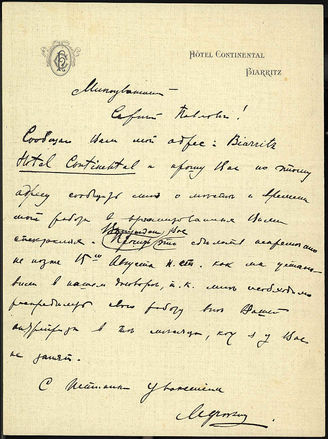 HÔTEL CONTINENTAL
BIARRITZ
Милостивый
Сергей Павлович!
Сообщаю Вам мой адрес: Biarritz
Hotel Continental и прошу Вас по этому
адресу сообщить мне о месте и времени
моей работы в Вами
спектаклях. Прошу это сделать
не позже 15го Августа н. ст. как мы
в нашем договоре, т. к. мне необходимо
распределить мою работу вне Вашей
антрепризы в тех месяцах,ког. я у Вас
не занят.
С уважением